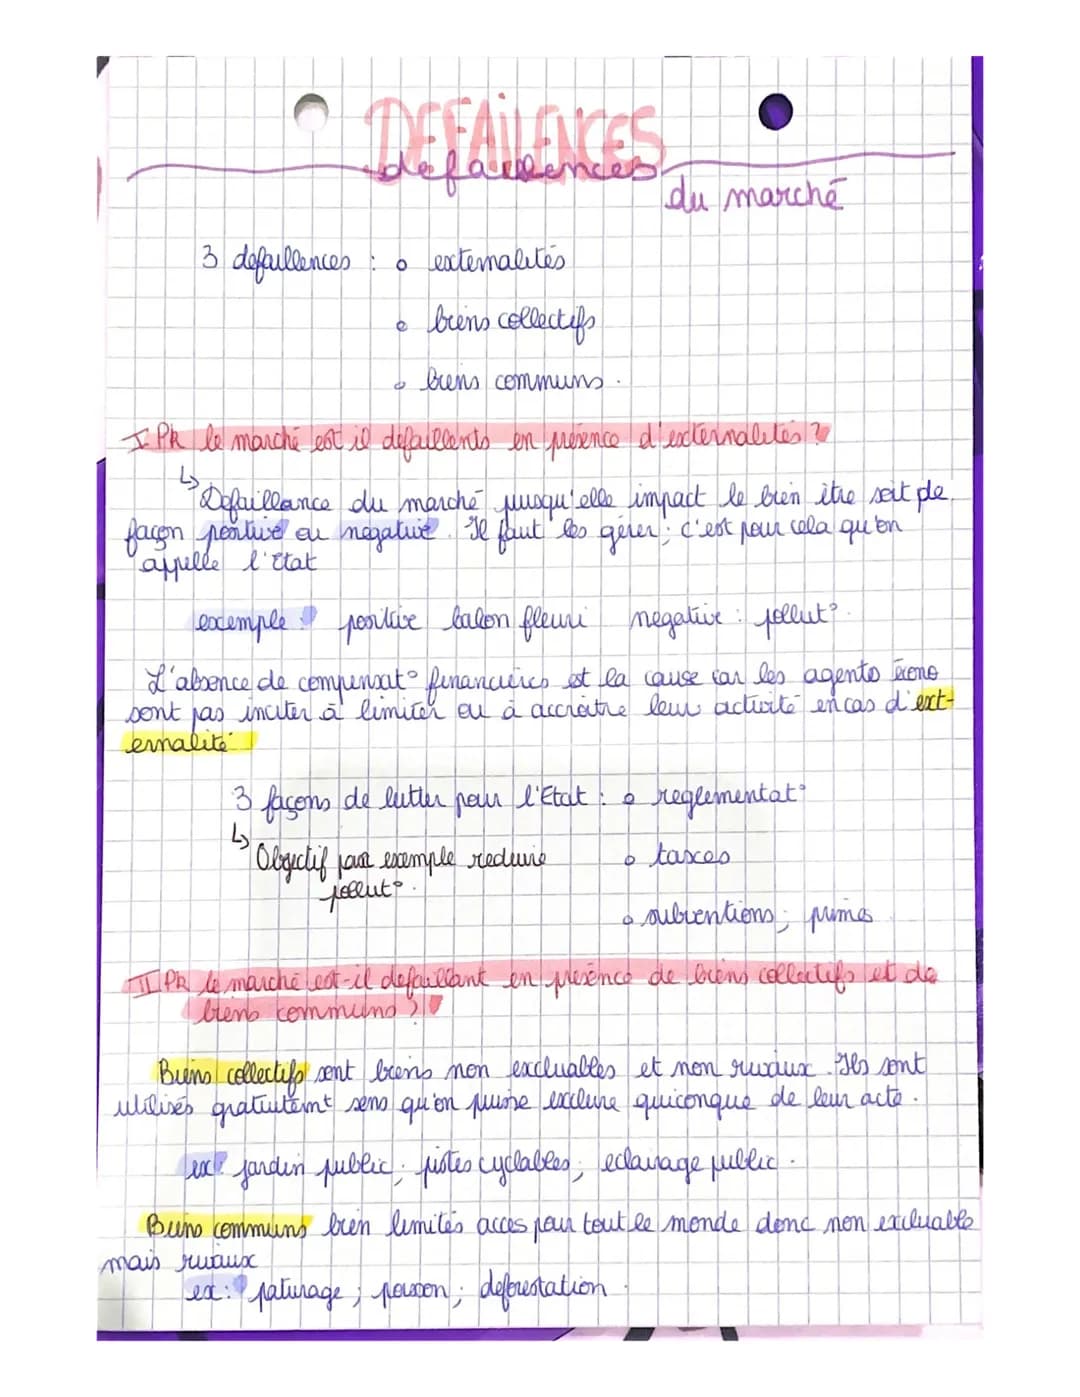 DEFAILENCES
defaillences
du marché
3 defaillences : o externalités
o biens collectifs
o biens communs.
I Pk le marché est il défaillents en présence d'externalités ?
↳ Défaillance du marché puisqu'elle impact le bien être soit de
façon positive ou negative. Il faut les gérer ; c'est pour cela qu'on
appelle l'Etat
exemple : positive balcon fleuri negative : pollut°.
L'absence de compensat° financières est la cause car les agents écono
sont pas inciter à limiter ou à accroître leur activité en cas d'ext-
ernalité
3 façons de lutter pour l'Etat : o reglementat°
↳ Objectif par exemple reduire o taxes
pollut°.
o subventions ; primes
II Pk le marché est-il defaillant en présence de biens collectifs et de
biens communs ?
Biens collectifs sont biens non excluables et non rivaux. Ils sont
utilisés gratuitemt sans qu'on puisse exclure quiconque de leur acte.
ex : jardin public ; pistes cyclables ; eclairage public.
Biens communs bien limités acces pour tout le monde donc non excluable
mais rivaux
ex : paturage ; poisson ; deforestation.